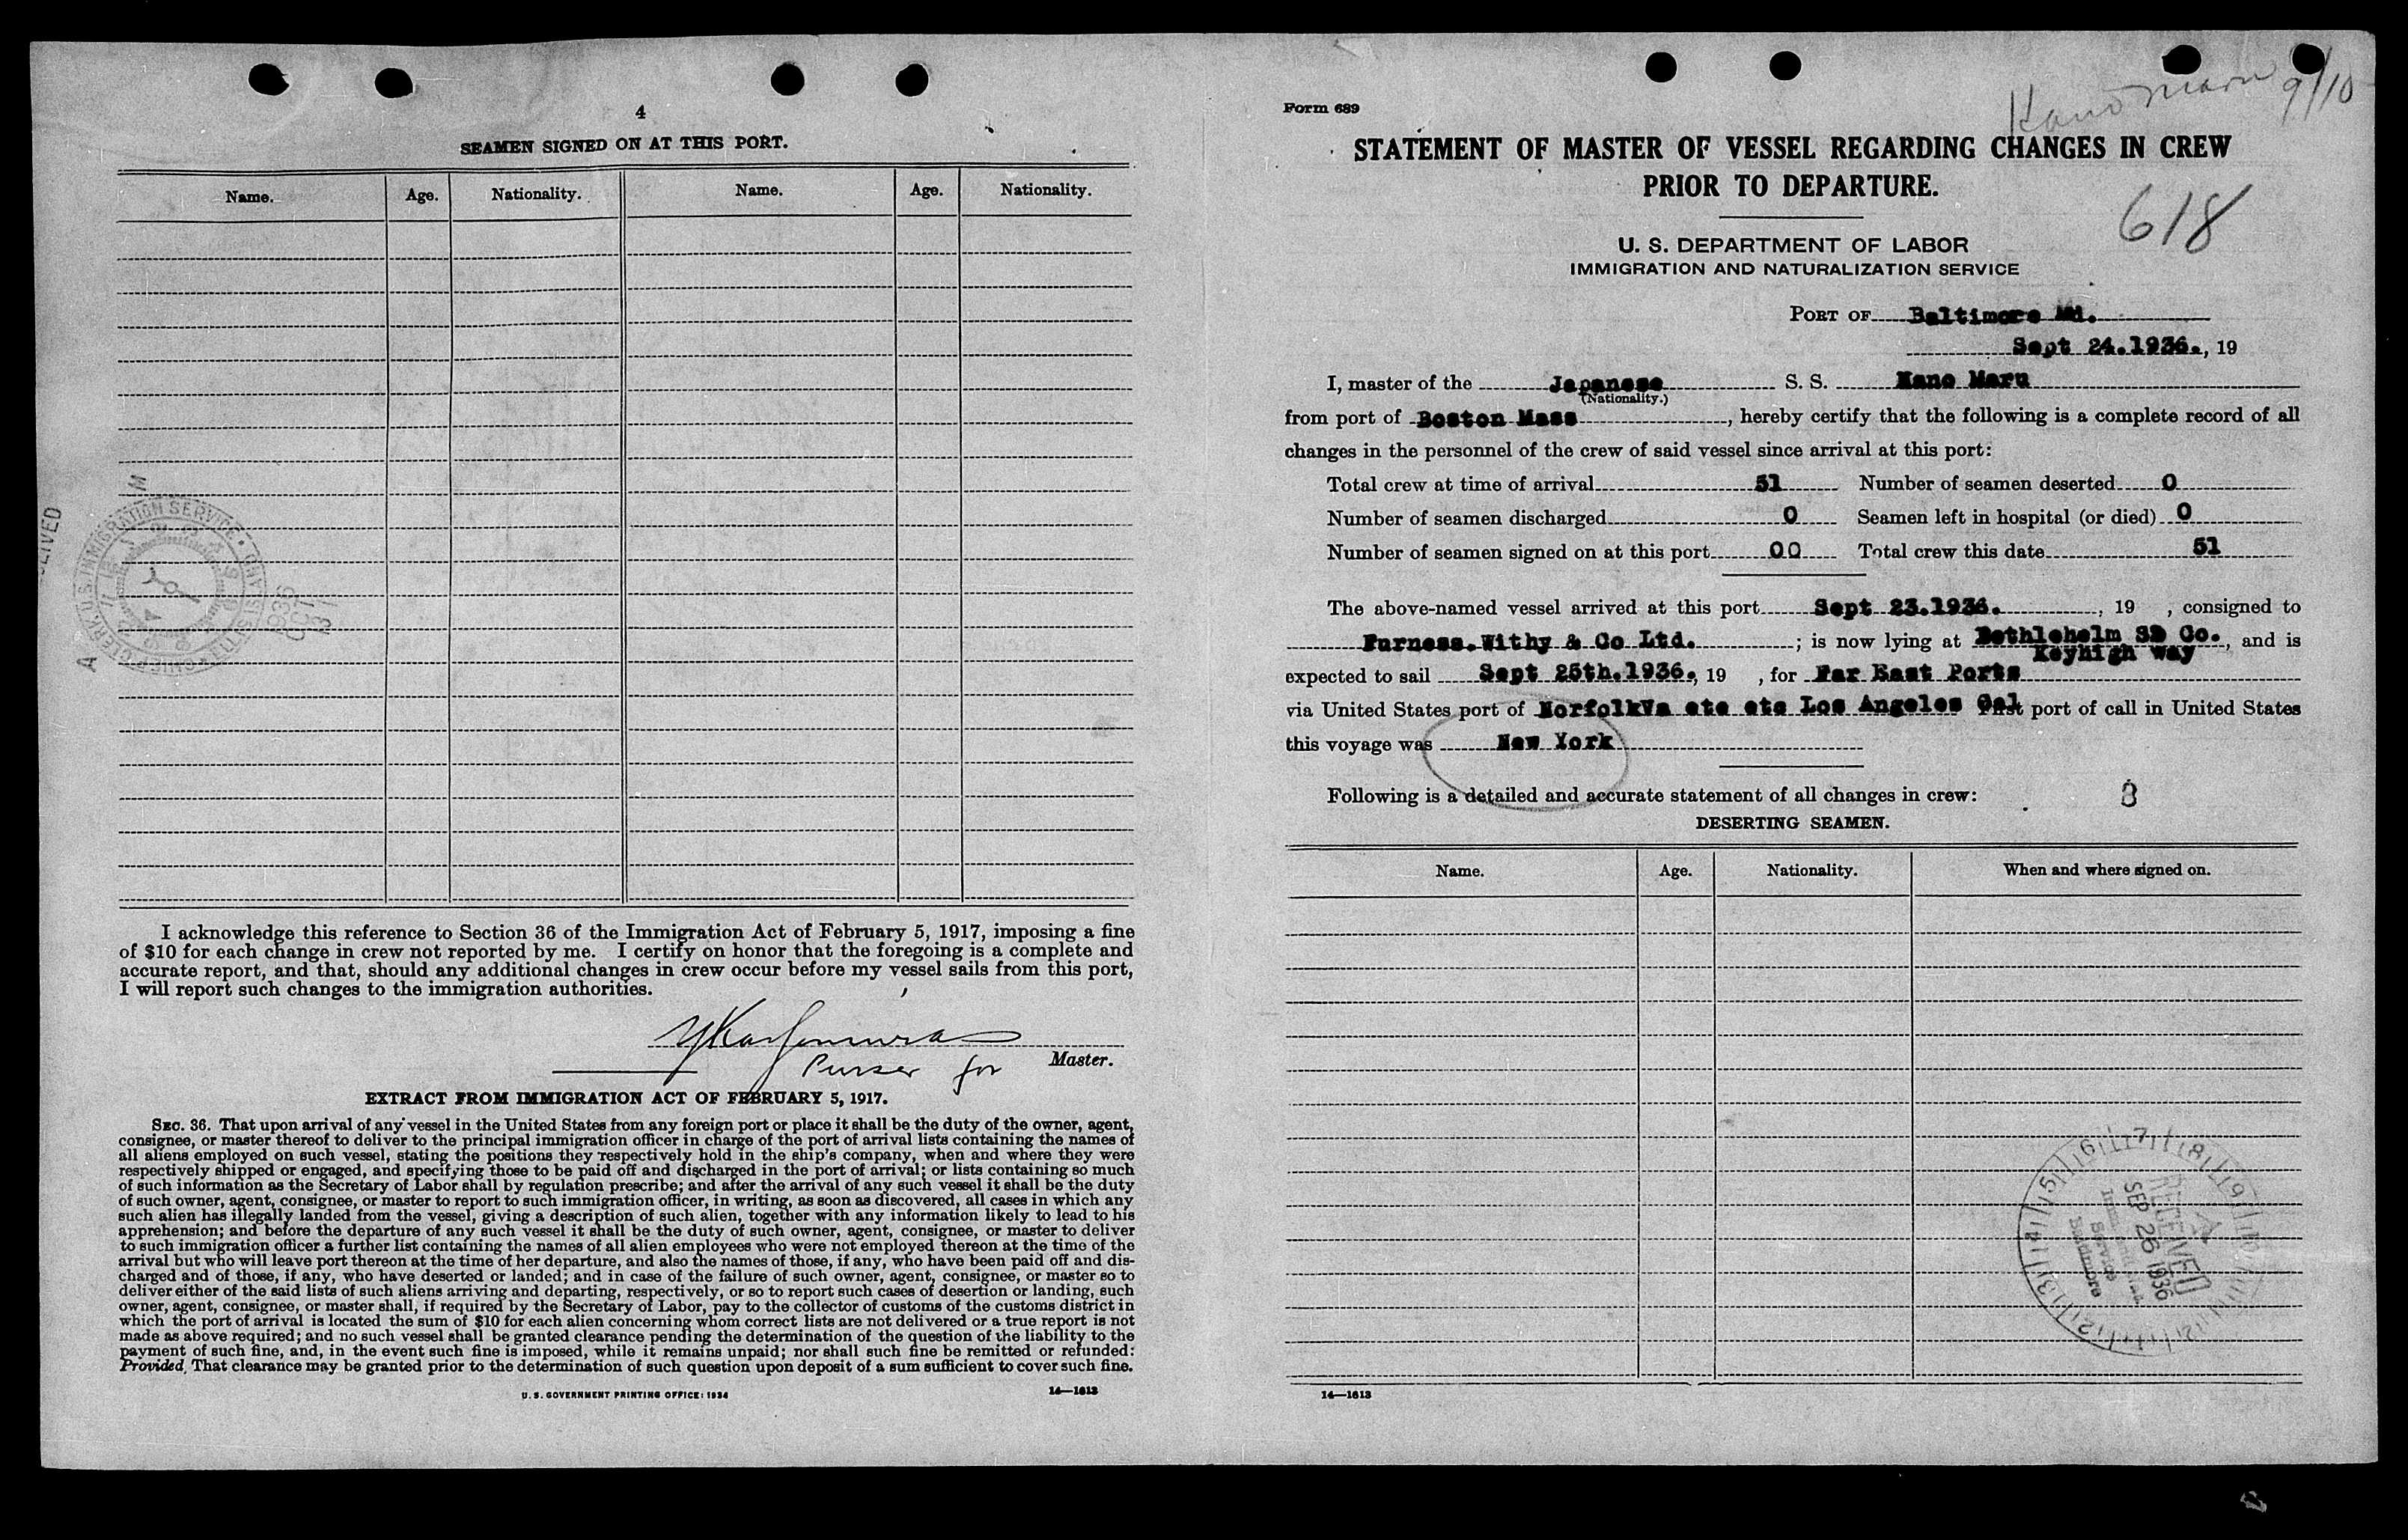 4
SEAMEN SIGNED ON AT THIS PORT.
Name. Age. Nationality. Name. Age. Nationality.
CHIEF CLERK, U.S. IMMIGRATION SERVICE
1936 OCT 31
A M
I acknowledge this reference to Section 36 of the Immigration Act of February 5, 1917, imposing a fine
of $10 for each change in crew not reported by me. I certify on honor that the foregoing is a complete and
accurate report, and that, should any additional changes in crew occur before my vessel sails from this port,
I will report such changes to the immigration authorities.
Purser for Master.
EXTRACT FROM IMMIGRATION ACT OF FEBRUARY 5, 1917.
SEC. 36. That upon arrival of any vessel in the United States from any foreign port or place it shall be the duty of the owner, agent,
consignee, or master thereof to deliver to the principal immigration officer in charge of the port of arrival lists containing the names of
all aliens employed on such vessel, stating the positions they respectively hold in the ship's company, when and where they were
respectively shipped or engaged, and specifying those to be paid off and discharged in the port of arrival; or lists containing so much
of such information as the Secretary of Labor shall by regulation prescribe; and after the arrival of any such vessel it shall be the duty
of such owner, agent, consignee, or master to report to such immigration officer, in writing, as soon as discovered, all cases in which any
such alien has illegally landed from the vessel, giving a description of such alien, together with any information likely to lead to his
apprehension; and before the departure of any such vessel it shall be the duty of such owner, agent, consignee, or master to deliver
to such immigration officer a further list containing the names of all alien employees who were not employed thereon at the time of the
arrival but who will leave port thereon at the time of her departure, and also the names of those, if any, who have been paid off and dis-
charged and of those, if any, who have deserted or landed; and in case of the failure of such owner, agent, consignee, or master so to
deliver either of the said lists of such aliens arriving and departing, respectively, or so to report such cases of desertion or landing, such
owner, agent, consignee, or master shall, if required by the Secretary of Labor, pay to the collector of customs of the customs district in
which the port of arrival is located the sum of $10 for each alien concerning whom correct lists are not delivered or a true report is not
made as above required; and no such vessel shall be granted clearance pending the determination of the question of the liability to the
payment of such fine, and, in the event such fine is imposed, while it remains unpaid; nor shall such fine be remitted or refunded:
Provided, That clearance may be granted prior to the determination of such question upon deposit of a sum sufficient to cover such fine.
U. S. GOVERNMENT PRINTING OFFICE: 1934 14—1613
Kano Maru 9/10
Form 689
STATEMENT OF MASTER OF VESSEL REGARDING CHANGES IN CREW
PRIOR TO DEPARTURE.
618
U. S. DEPARTMENT OF LABOR
IMMIGRATION AND NATURALIZATION SERVICE
PORT OF Baltimore Md.
Sept 24.1936., 19
I, master of the Japanese S. S. Kano Maru
(Nationality.)
from port of Boston Mass, hereby certify that the following is a complete record of all
changes in the personnel of the crew of said vessel since arrival at this port:
Total crew at time of arrival 51 Number of seamen deserted 0
Number of seamen discharged 0 Seamen left in hospital (or died) 0
Number of seamen signed on at this port 00 Total crew this date 51
The above-named vessel arrived at this port Sept 23.1936., 19 , consigned to
Furness.Withy & Co Ltd. ; is now lying at Bethlehelm SB Co., and is
Keyhigh way
expected to sail Sept 25th.1936., 19 , for Far East Ports
via United States port of NorfolkVa etc etc Los Angeles Cal First port of call in United States
this voyage was New York
Following is a detailed and accurate statement of all changes in crew:
DESERTING SEAMEN.
Name. Age. Nationality. When and where signed on.
RECEIVED
SEP 26 1936
Service
Baltimore
14—1613